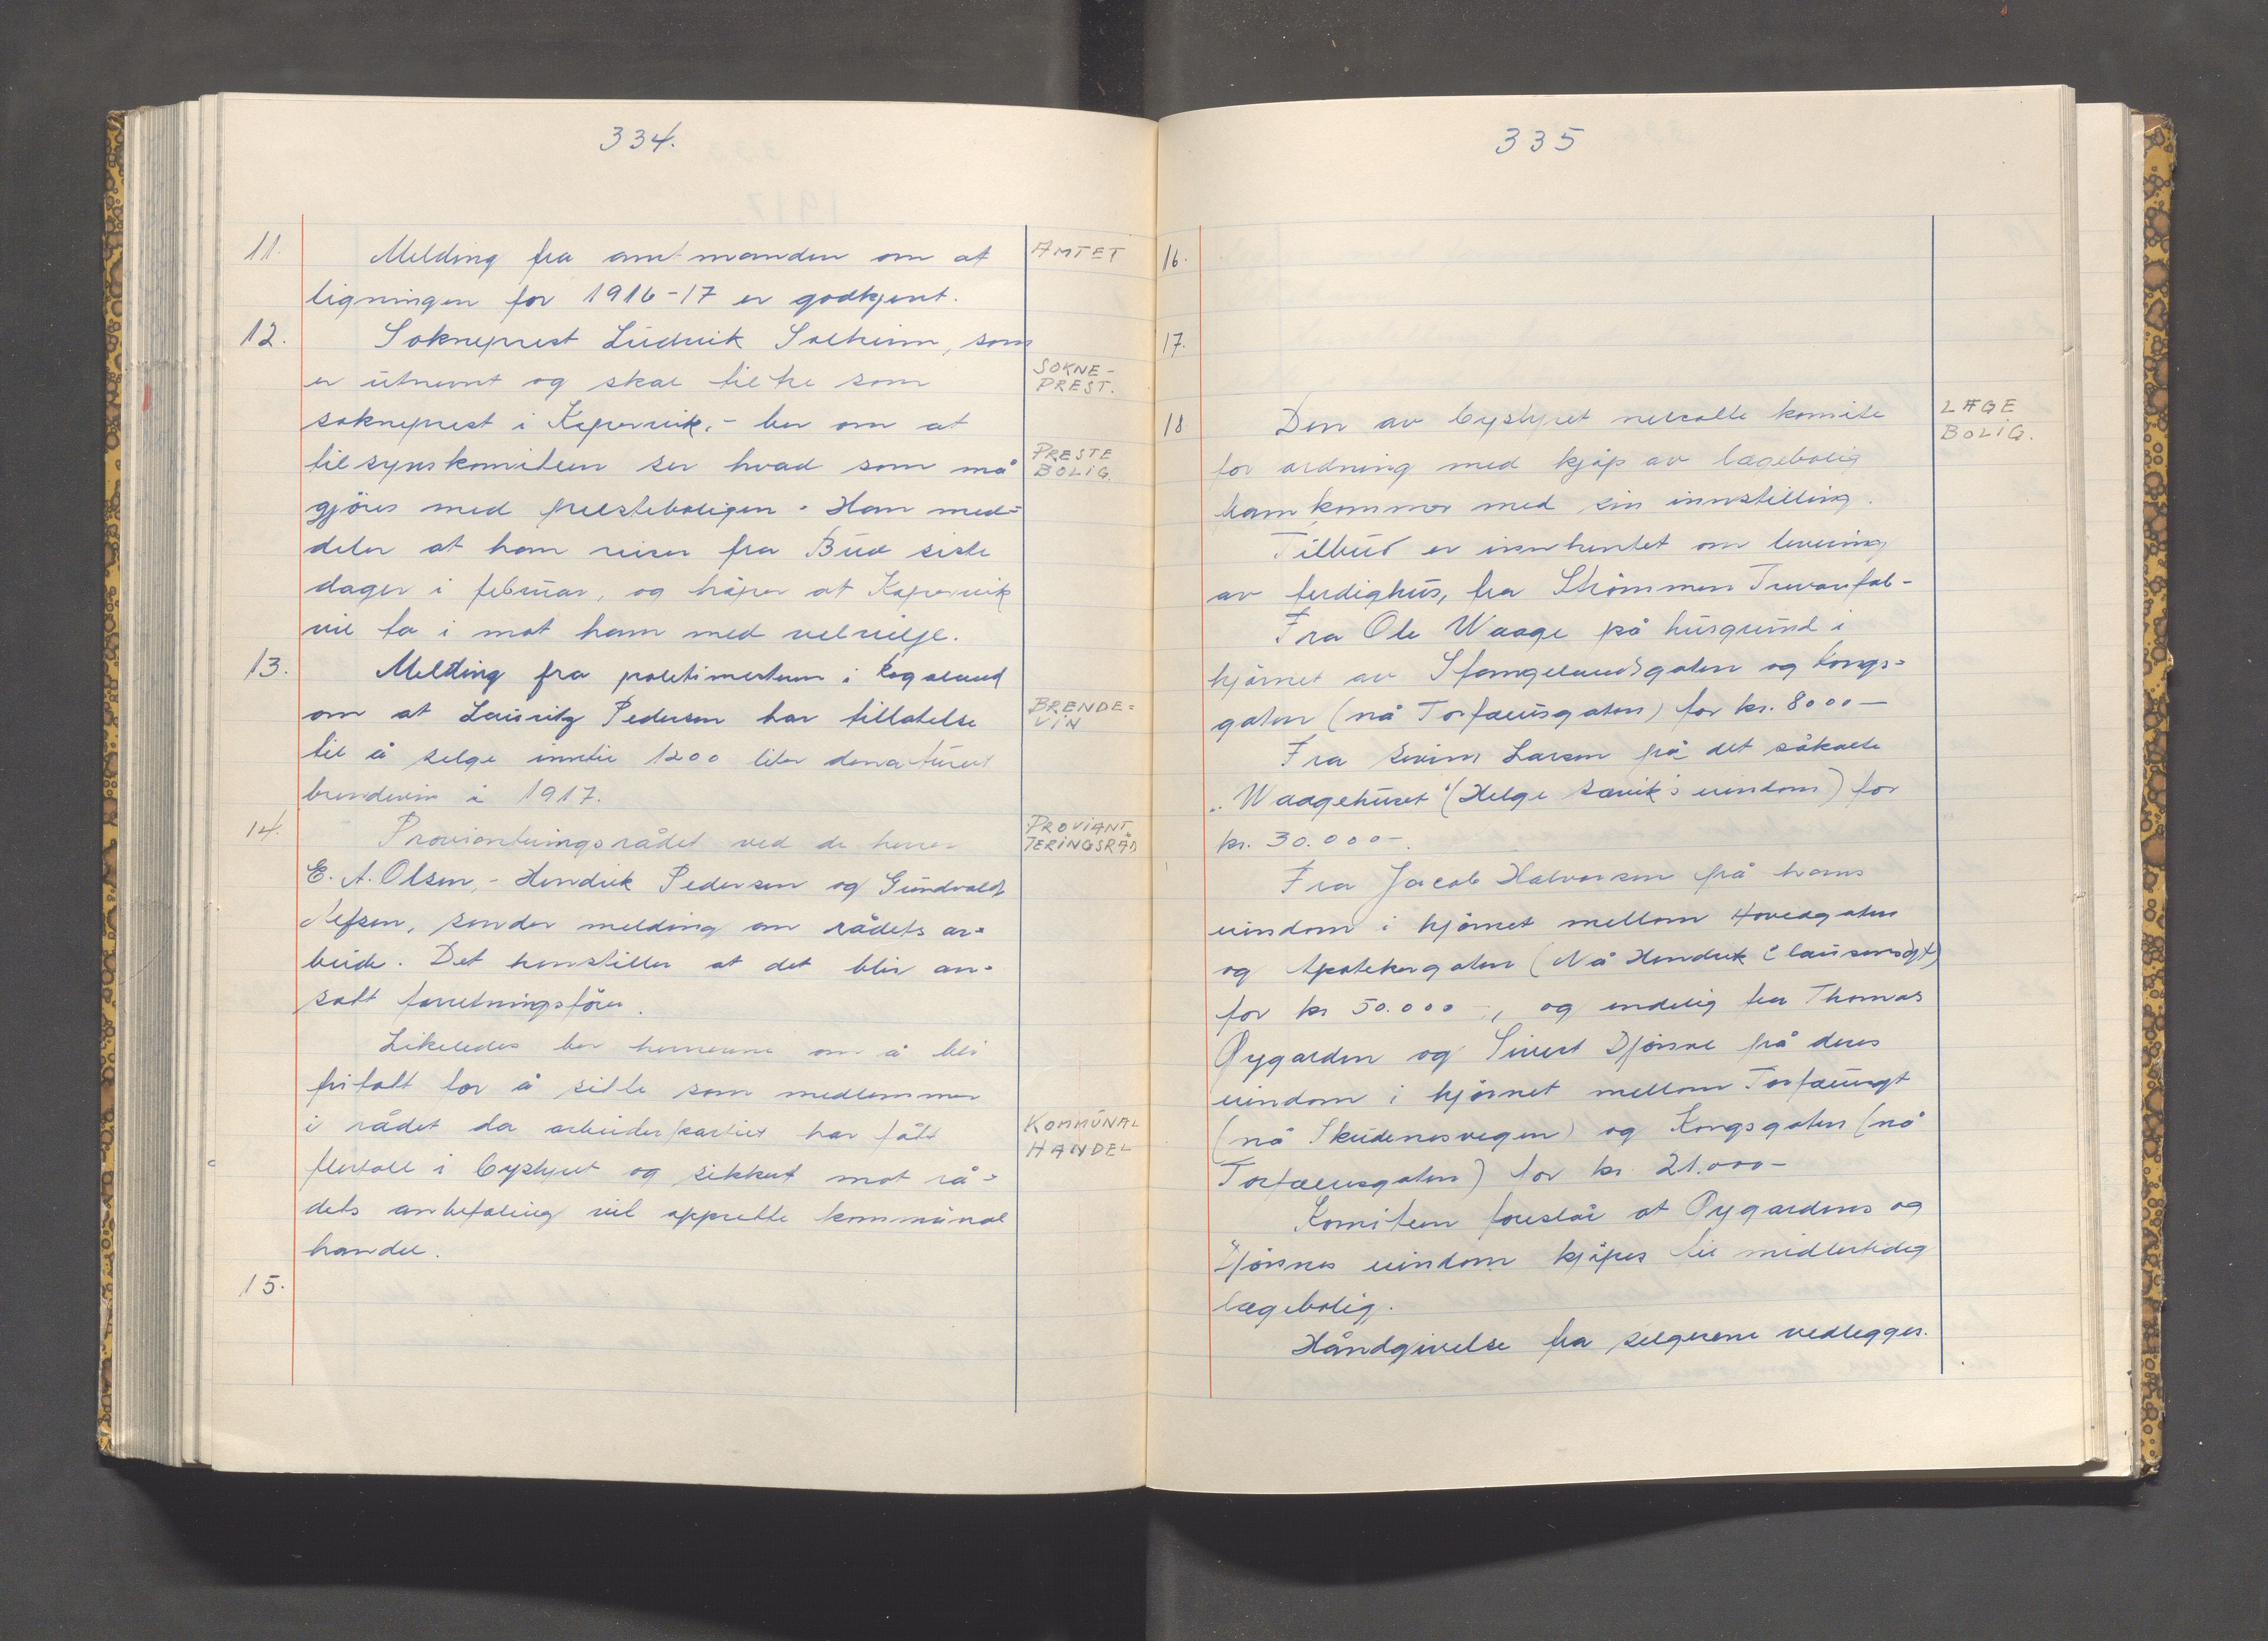 334.
11. Melding fra amtmanden om at
ligningen for 1916-17 er godkjent.
AMTET
12. Sokneprest Ludvik Solheim, som
er utnevnt og skal tiltre som
SOKNE-
PREST.
sokneprest i Kopervik, - ber om at
tilsynskomiteen ser hvad som må
PRESTE
BOLIG.
gjöres med presteboligen. Han med=
deler at han reiser fra Bud siste
dager i februar, og håper at Kopervik
vil ta i mot ham med velvilje.
13. Melding fra politimesteren i Rogaland
om at Lauritz Pedersen har tillatelse
BRENDE=
VIN
til å selge inntil 1200 liter denaturert
brendevin i 1917.
14. Provianteringsrådet ved de herrer
PROVIANT
TERINGSRÅD
E. A. Olsen, - Hendrik Pedersen og Gundvald
Nefsen, sender melding om rådets ar=
beide. Det henstiller at det blir an=
satt forretningsförer.
Likeledes ber herrerne om å bli
fritatt for å sitte som medlemmer
i rådet da arbeiderpartiet har fått
KOMMUNAL
HANDEL
flertall i bystyret og sikkert mot rå=
dets anbefaling vil opprette kommunal
handel.
15.
335
16.
17.
18 Den av bystyret nedsatte komite
LÆGE
BOLIG.
for ordning med kjöp av lægebolig
kommer med sin innstilling.
Tilbud er innhentet om levering
av ferdighus, fra Strömmen Trevarefab-
Fra Ole Waage på husgrund i
hjörnet av Stangelandsgaten og Kongs=
gaten (nå Torfæusgaten) for kr. 8000-
Fra Sevrin Larsen på det såkalte
"Waagehuset" (Helge Sævik's eiendom) for
kr. 30.000-.
Fra Jacob Halvorsen på hans
eiendom i hjörnet mellom Hovedgaten
og Apotekergaten (Nå Hendrik Clausensgt)
for kr 50.000-, og endelig fra Thomas
Øygarden og Sivert Djörsne på deres
eiendom i hjörnet mellom Torfæusgt
(nå Skudenesvegen) og Kongsgaten (nå
Torfæusgaten) for kr. 21.000-
Komiteen foreslår at Øygardens og
Djörsnes eiendom kjöpes til midlertidig
lægebolig.
Håndgivelse fra selgerene vedlegges.